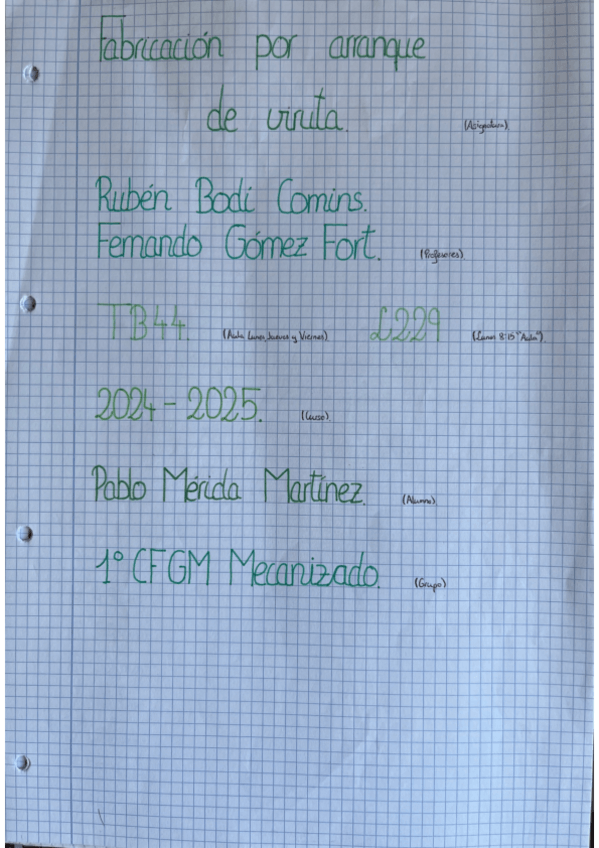 Fabricación por arranque
de viruta. (Asignatura)
Rubén Bodí Comins.
Fernando Gómez Fort. (Profesores)
TB44. (Aula Lunes, Jueves y Viernes) L229 (Lunes 8:15 "Aula")
2024-2025. (Curso)
Pablo Mérida Martínez. (Alumno)
1º CFGM Mecanizado. (Grupo)